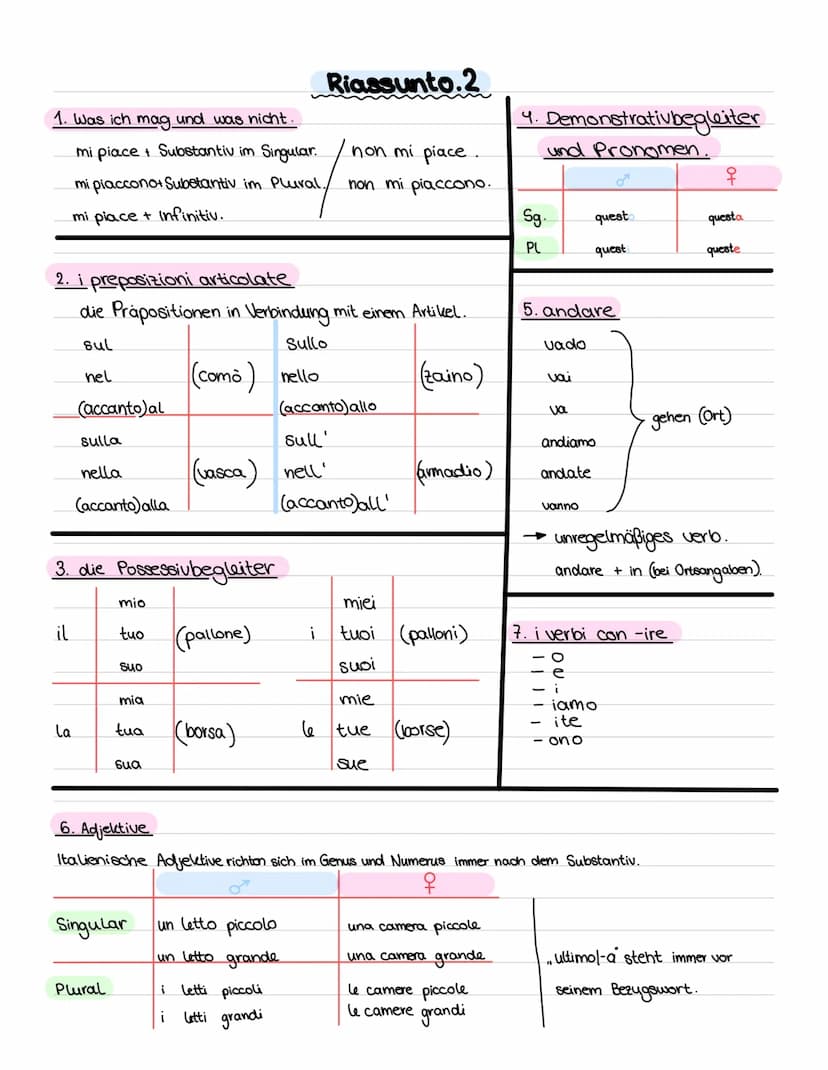 Riassunto.2
1. Was ich mag und was nicht.
mi piace + Substantiv im Singular. / non mi piace.
mi piaccono+Substantiv im Plural. / non mi piaccono.
mi piace + Infinitiv.
2. i preposizioni articolate
die Präpositionen in Verbindung mit einem Artikel.
sul sullo
nel (comò) nello (zaino)
(accanto)al (accanto)allo
sulla sull'
nella (vasca) nell' (armadio)
(accanto)alla (accanto)all'
3. die Possessivbegleiter
mio miei
il tuo (pallone) i tuoi (palloni)
suo suoi
mia mie
la tua (borsa) le tue (borse)
sua sue
4. Demonstrativbegleiter
und Pronomen.
♂ ♀
Sg. questo questa
Pl quest queste
5. andare
vado
vai
va
gehen (Ort)
andiamo
andate
vanno
→ unregelmäßiges verb.
andare + in (bei Ortsangaben).
7. i verbi con -ire
- o
- e
- i
- iamo
- ite
- ono
6. Adjektive
Italienische Adjektive richten sich im Genus und Numerus immer nach dem Substantiv.
♂ ♀
Singular un letto piccolo una camera piccole
un letto grande una camera grande
Plural i letti piccoli le camere piccole
i letti grandi le camere grandi
„ultimo/-a" steht immer vor
seinem Bezugswort.